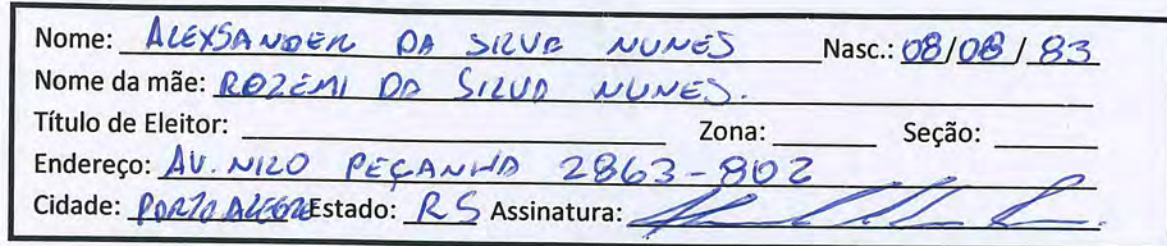 Nome: ALEXSANDER DA SILVA NUNES Nasc.: 08/08/83
Nome da mãe: ROZEMI DA SILVA NUNES.
Título de Eleitor: Zona: Seção:
Endereço: AV. NILO PEÇANHA 2863-802
Cidade: PORTO ALEGRE Estado: RS Assinatura: